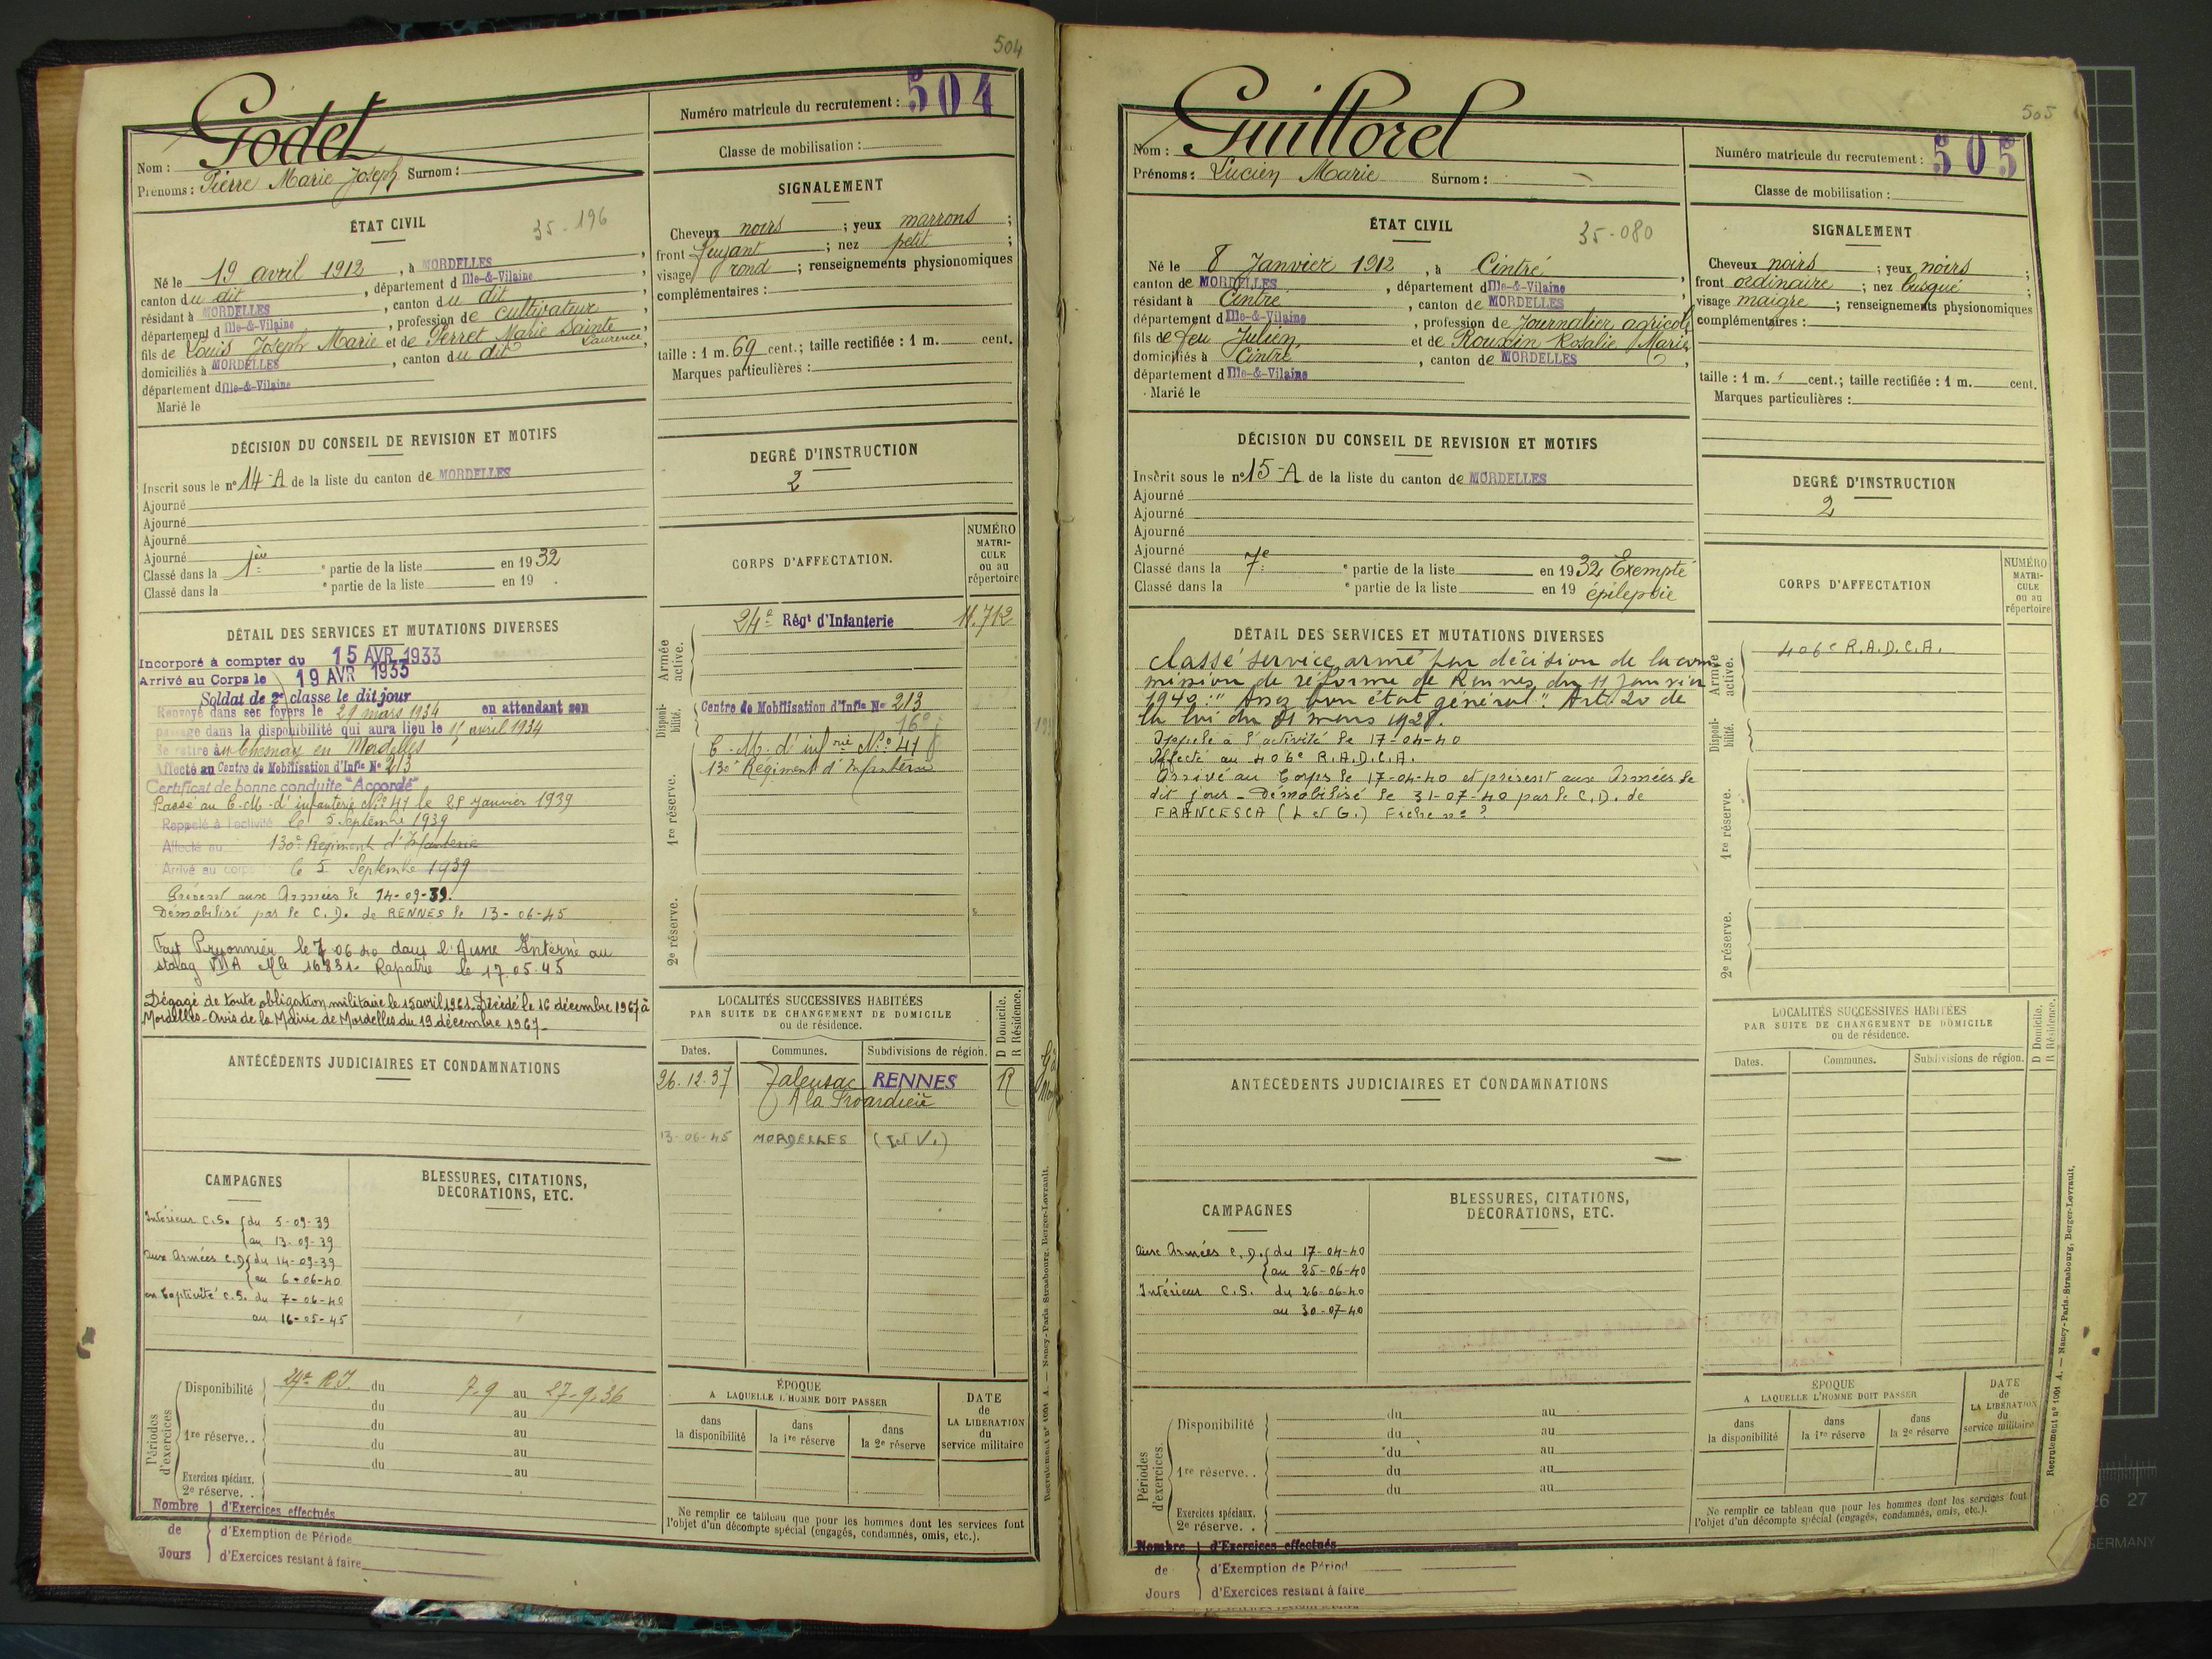 504
Godet
Nom :
Prénoms : Pierre Marie Joseph Surnom :
Numéro matricule du recrutement : 504
Classe de mobilisation :
ÉTAT CIVIL
35-196
Né le 19 avril 1912, à MORDELLES
canton du dit, département d Ille-&-Vilaine,
résidant à MORDELLES, canton du dit
département d Ille-&-Vilaine, profession de cultivateur,
fils de Louis Joseph Marie et de Perret Marie Sainte Laurence,
domiciliés à MORDELLES, canton du dit
département d Ille-&-Vilaine
Marié le
SIGNALEMENT
Cheveux noirs ; yeux marrons ;
front fuyant ; nez petit ;
visage rond ; renseignements physionomiques
complémentaires :
taille : 1 m. 69 cent.; taille rectifiée : 1 m. cent.
Marques particulières :
DÉCISION DU CONSEIL DE REVISION ET MOTIFS
Inscrit sous le n° 14-A de la liste du canton de MORDELLES
Ajourné
Ajourné
Ajourné
Ajourné
Classé dans la 1ère partie de la liste en 1932
Classé dans la partie de la liste en 19 .
DEGRÉ D'INSTRUCTION
2
DÉTAIL DES SERVICES ET MUTATIONS DIVERSES
Incorporé à compter du 15 AVR 1933
Arrivé au Corps le 19 AVR 1933
Soldat de 2e classe le dit jour
Renvoyé dans ses foyers le 29 mars 1934 en attendant son
passage dans la disponibilité qui aura lieu le 15 avril 1934
Se retire au Chesnay en Mordelles
Affecté au Centre de Mobilisation d'Infie N° 213
Certificat de bonne conduite "Accordé"
Passé au C.M. d'infanterie N° 41 le 28 janvier 1939
Rappelé à l'activité le 5 Septembre 1939
Affecté au 130e Régiment d'Infanterie
Arrivé au corps le 5 Septembre 1939
Présent aux Armées le 14-09-39.
Démobilisé par le C.D. de RENNES le 13-06-45
Fait Prisonnier le 7 06 40 dans l'Aisne Interné au
stalag Mle 16831. Rapatrié le 17.05.45
Dégagé de toute obligation militaire le 15 avril 1961. Décédé le 16 décembre 1967 à
Mordelles. Avis de la Mairie de Mordelles du 19 décembre 1967
CORPS D'AFFECTATION.
NUMÉRO MATRI-CULE ou au répertoire
Armée active.
24e Régt d'Infanterie 11.712
Disponi-bilité.
Centre de Mobilisation d'Infie N° 213
16°
C.M. d'infrie N° 41
130e Régiment d'Infanterie
1re réserve.
2e réserve.
ANTÉCÉDENTS JUDICIAIRES ET CONDAMNATIONS
LOCALITÉS SUCCESSIVES HABITÉES
PAR SUITE DE CHANGEMENT DE DOMICILE
ou de résidence.
D Domicile.
R Résidence.
Dates. Communes. Subdivisions de région.
26.12.37 Talensac RENNES R
A la
13-06-45 MORDELLES (I et V.)
CAMPAGNES
Intérieur C.S. du 5-09-39
au 13-09-39
aux Armées C.D. du 14-09-39
au 6-06-40
en Captivité C.S. du 7-06-40
au 16-05-45
BLESSURES, CITATIONS,
DÉCORATIONS, ETC.
Périodes d'exercices
Disponibilité 24e R.I. du 7.9 au 27.9.36
du au
1re réserve. . du au
du au
du au
Exercices spéciaux.
2e réserve. .
Nombre de Jours
d'Exercices effectués
d'Exemption de Période
d'Exercices restant à faire
ÉPOQUE
A LAQUELLE L'HOMME DOIT PASSER
dans la disponibilité
dans la 1re réserve
dans la 2e réserve
DATE de LA LIBÉRATION du service militaire
Ne remplir ce tableau que pour les hommes dont les services font
l'objet d'un décompte spécial (engagés, condamnés, omis, etc.).
Recrutement n° 1001 A. — Nancy-Paris-Strasbourg, Berger-Levrault.
505
Guillorel
Nom :
Prénoms : Lucien Marie Surnom :
Numéro matricule du recrutement : 505
Classe de mobilisation :
ÉTAT CIVIL
35-080
Né le 8 Janvier 1912, à Cintré
canton de MORDELLES, département d Ille-&-Vilaine
résidant à Cintré, canton de MORDELLES
département d Ille-&-Vilaine, profession de Journalier agricole
fils de feu Julien et de Rouxin Rosalie Marie,
domiciliés à Cintré, canton de MORDELLES
département d Ille-&-Vilaine
Marié le
SIGNALEMENT
Cheveux noirs ; yeux noirs ;
front ordinaire ; nez busqué ;
visage maigre ; renseignements physionomiques
complémentaires :
taille : 1 m. cent.; taille rectifiée : 1 m. cent.
Marques particulières :
DÉCISION DU CONSEIL DE REVISION ET MOTIFS
Inscrit sous le n° 15-A de la liste du canton de MORDELLES
Ajourné
Ajourné
Ajourné
Ajourné
Classé dans la 7e partie de la liste en 1932 Exempté
Classé dans la partie de la liste en 19 épilepsie
DEGRÉ D'INSTRUCTION
2
DÉTAIL DES SERVICES ET MUTATIONS DIVERSES
classé service armé par décision de la com
mission de réforme de Rennes du 11 janvier
1940 : "Assez bon état général". Art. 20 de
la loi du 31 mars 1928.
Appelé à l'activité le 17-04-40
Affecté au 406e R.A.D.C.A.
Arrivé au Corps le 17-04-40 et présent aux Armées le
dit jour - Démobilisé le 31-07-40 par le C.D. de
FRANCESCA (L et G.) Fiche n° ?
CORPS D'AFFECTATION
NUMÉRO MATRI-CULE ou au répertoire
Armée active.
406e R.A.D.C.A.
Disponi-bilité.
1re réserve.
2e réserve.
ANTÉCÉDENTS JUDICIAIRES ET CONDAMNATIONS
LOCALITÉS SUCCESSIVES HABITÉES
PAR SUITE DE CHANGEMENT DE DOMICILE
ou de résidence.
D Domicile.
R Résidence.
Dates. Communes. Subdivisions de région.
CAMPAGNES
aux Armées C.D. du 17-04-40
au 25-06-40
Intérieur C.S. du 26-06-40
au 30-07-40
BLESSURES, CITATIONS,
DÉCORATIONS, ETC.
Périodes d'exercices.
Disponibilité du au
du au
1re réserve. . du au
du au
du au
Exercices spéciaux.
2e réserve. .
Nombre de Jours
d'Exercices effectués
d'Exemption de Périod
d'Exercices restant à faire
ÉPOQUE
A LAQUELLE L'HOMME DOIT PASSER
dans la disponibilité
dans la 1re réserve
dans la 2e réserve
DATE de LA LIBÉRATION du service militaire
Ne remplir ce tableau que pour les hommes dont les services font
l'objet d'un décompte spécial (engagés, condamnés, omis, etc.).
Recrutement n° 1001 A. — Nancy-Paris-Strasbourg, Berger-Levrault.
26 27
GERMANY